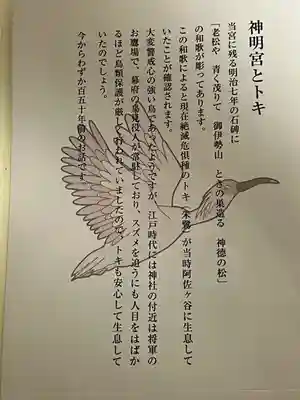 神明宮とトキ
当宮に残る明治七年の石碑に
「老松や 青く茂りて 御伊勢山 ときの巣造る 神徳の松」
の和歌が彫ってあります。
この和歌によると現在絶滅危惧種のトキ(朱鷺)が当時阿佐ヶ谷に生息して
いたことが確認されます。
大変警戒心の強い鳥であったようですが、江戸時代には神社の付近は将軍の
お鷹場で、幕府の鳥見役人が常駐しており、スズメを追うにも人目をはばか
るほど鳥類保護が厳しく行われていましたので、トキも安心して生息して
いたのでしょう。
今からわずか百五十年前のお話です。